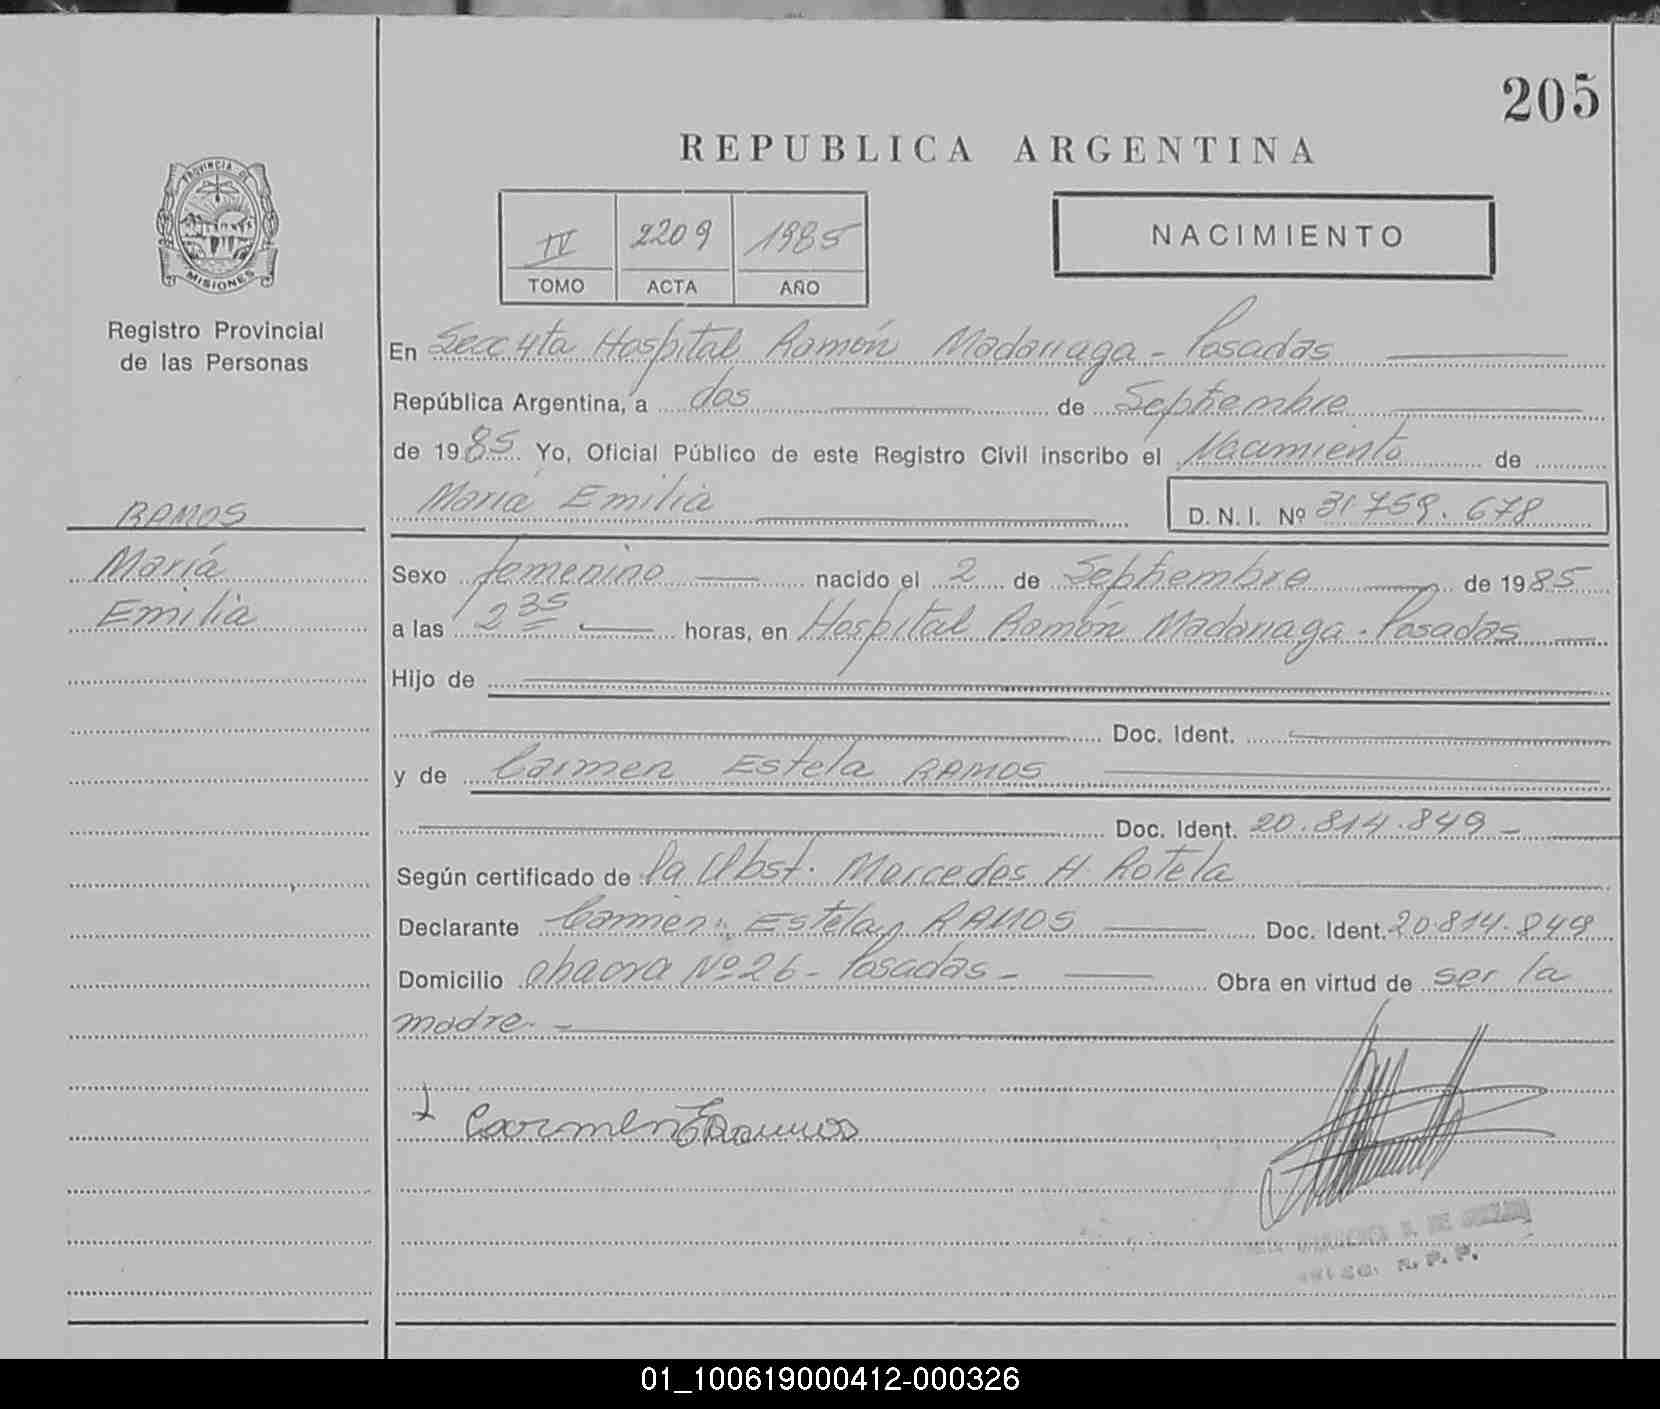 205
REPUBLICA ARGENTINA
PROVINCIA DE
MISIONES
Registro Provincial
de las Personas
IV 2209 1985
TOMO ACTA AÑO
NACIMIENTO
En Secc 4ta Hospital Ramón Madariaga - Posadas
República Argentina, a dos de Septiembre
de 1985. Yo, Oficial Público de este Registro Civil inscribo el Nacimiento de
María Emilia D. N. I. Nº 31759.678
RAMOS
María
Emilia
Sexo femenino nacido el 2 de Septiembre de 1985
a las 2 35 horas, en Hospital Ramón Madariaga - Posadas
Hijo de
Doc. Ident.
y de Carmen Estela RAMOS
Doc. Ident. 20.814.849 -
Según certificado de la Obst. Mercedes H. Rotela
Declarante Carmen Estela RAMOS Doc. Ident. 20.814.849
Domicilio chacra Nº 26 - Posadas - Obra en virtud de ser la
madre. -
Carmen E Ramos
R. P. P.
01_100619000412-000326